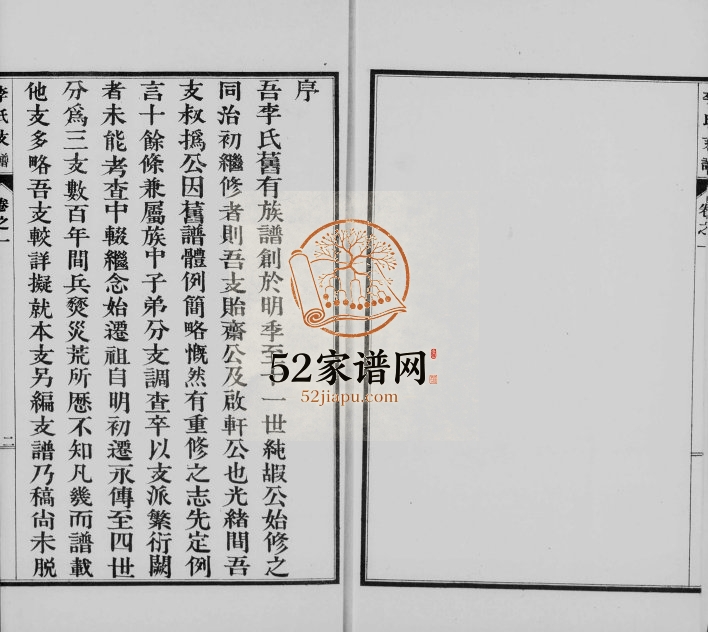 序
吾李氏舊有族譜創於明季至十一世純嘏公始修之
同治初繼修者則吾支貽齋公及啟軒公也光緒間吾
支叔撝公因舊譜體例簡略慨然有重修之志先定例
言十餘條兼屬族中子弟分支調查卒以支派繁衍闕
者未能考查中輟繼念始遷祖自明初遷永傳至四世
分爲三支數百年間兵燹災荒所歷不知凡幾而譜載
他支多略吾支較詳擬就本支另編支譜乃稿尙未脫
李氏支譜
卷之一
二
李氏支譜
卷之一
52家谱网
52jiapu.com